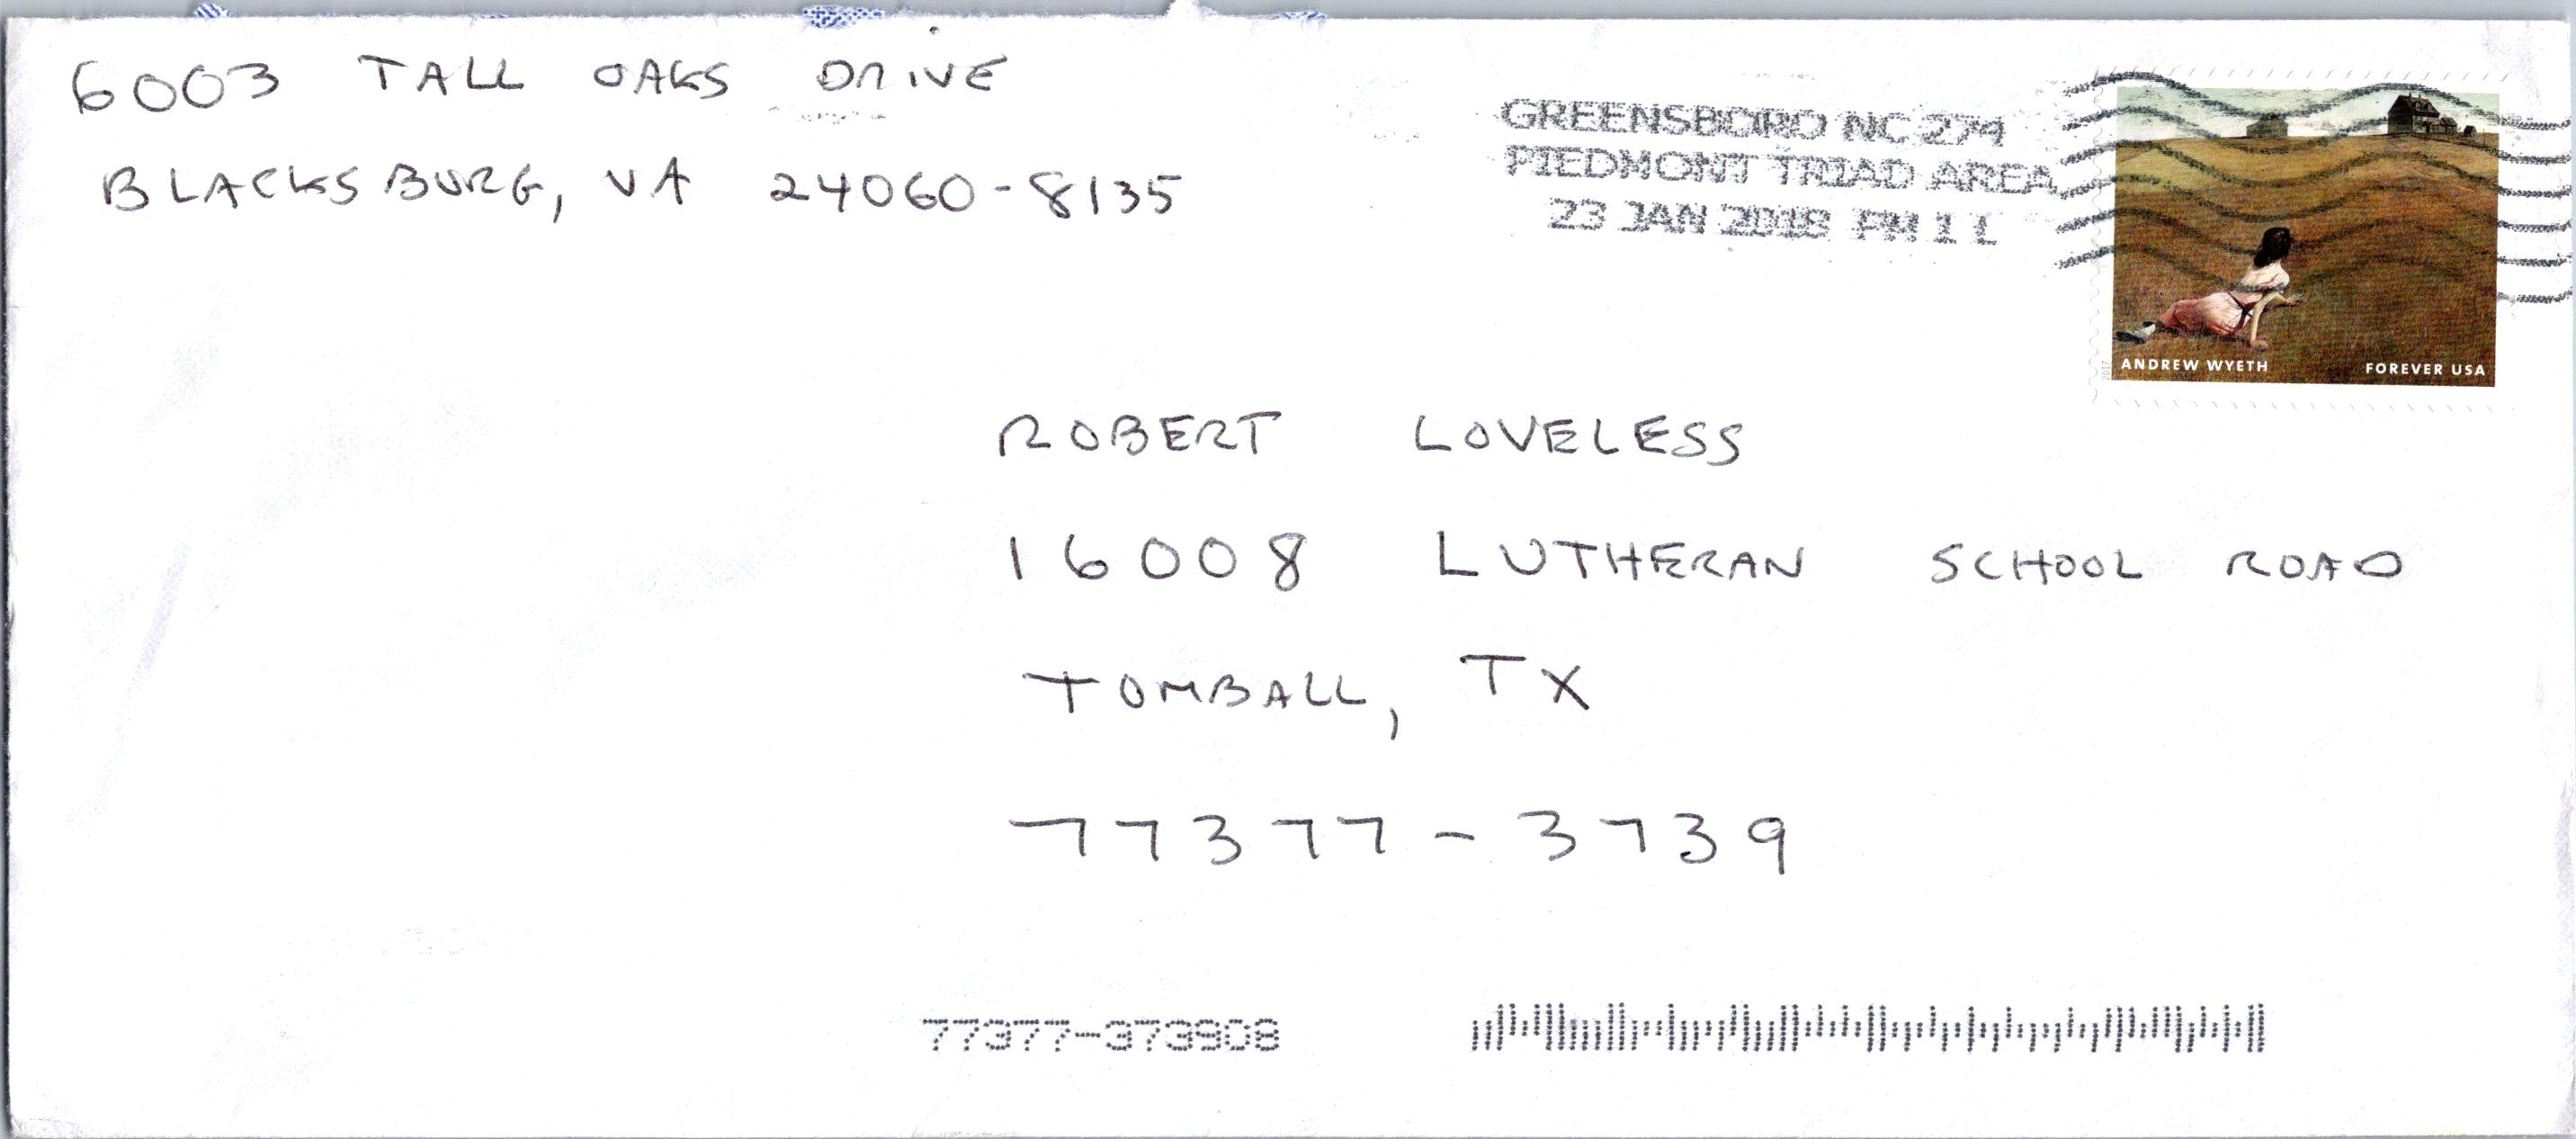 6003 TALL OAKS DRIVE
BLACKSBURG, VA 24060-8135
GREENSBORO NC 274
PIEDMONT TRIAD AREA
23 JAN 2018 PM 1 L
2017
ANDREW WYETH FOREVER USA
ROBERT LOVELESS
16008 LUTHERAN SCHOOL ROAD
TOMBALL, TX
77377-3739
77377-373908